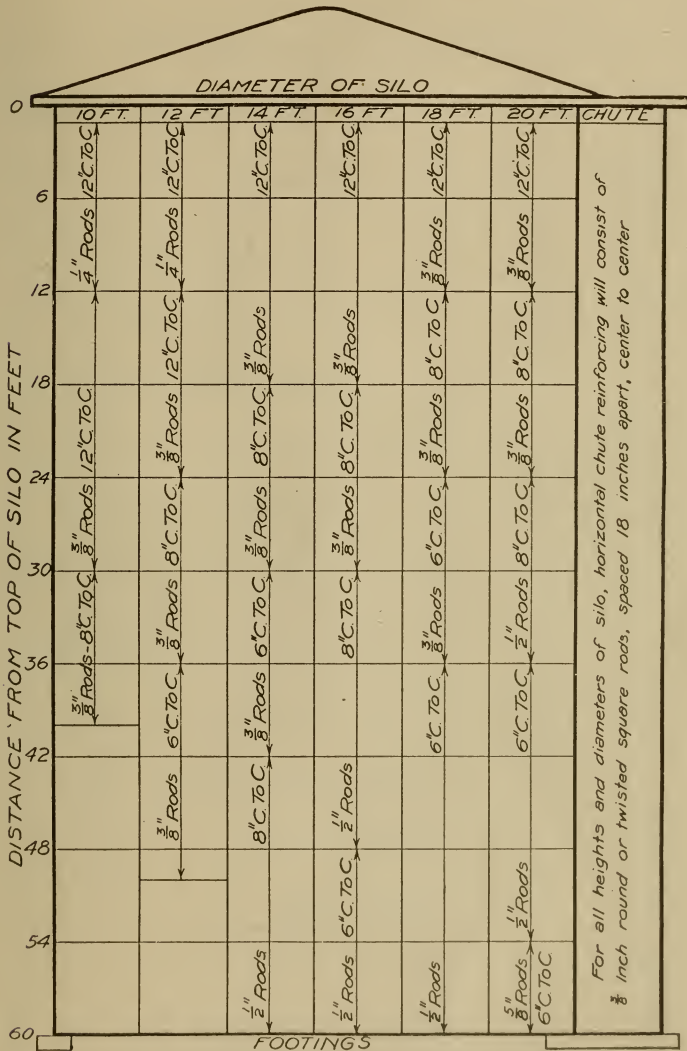 DIAMETER OF SILO
10 FT. 12 FT 14 FT. 16 FT 18 FT. 20 FT. CHUTE
DISTANCE FROM TOP OF SILO IN FEET
0
6
12
18
24
30
36
42
48
54
60
1/4" Rods 12"C.ToC
3/8" Rods 12"C.ToC
3/8" Rods-8"C.ToC
1/4" Rods 12"C.ToC
3/8" Rods 12"C.ToC
3/8" Rods 8"C.ToC.
3/8" Rods 6"C.ToC
3/8" Rods 12"C.ToC
3/8" Rods 8"C.ToC.
3/8" Rods 6"C.ToC
1/2" Rods 8"C.ToC
3/8" Rods 12"C.ToC
3/8" Rods 8"C.ToC.
1/2" Rods 8"C.ToC
1/2" Rods 6"C.ToC
3/8" Rods 12"C.ToC
3/8" Rods 8"C.ToC
3/8" Rods 6"C.ToC
1/2" Rods 6"C.ToC
3/8" Rods 12"C.ToC
3/8" Rods 8"C.ToC
1/2" Rods 8"C.ToC
1/2" Rods 6"C.ToC
5/8" Rods
6"C.ToC
For all heights and diameters of silo, horizontal chute reinforcing will consist of
3/8 inch round or twisted square rods, spaced 18 inches apart, center to center
FOOTINGS